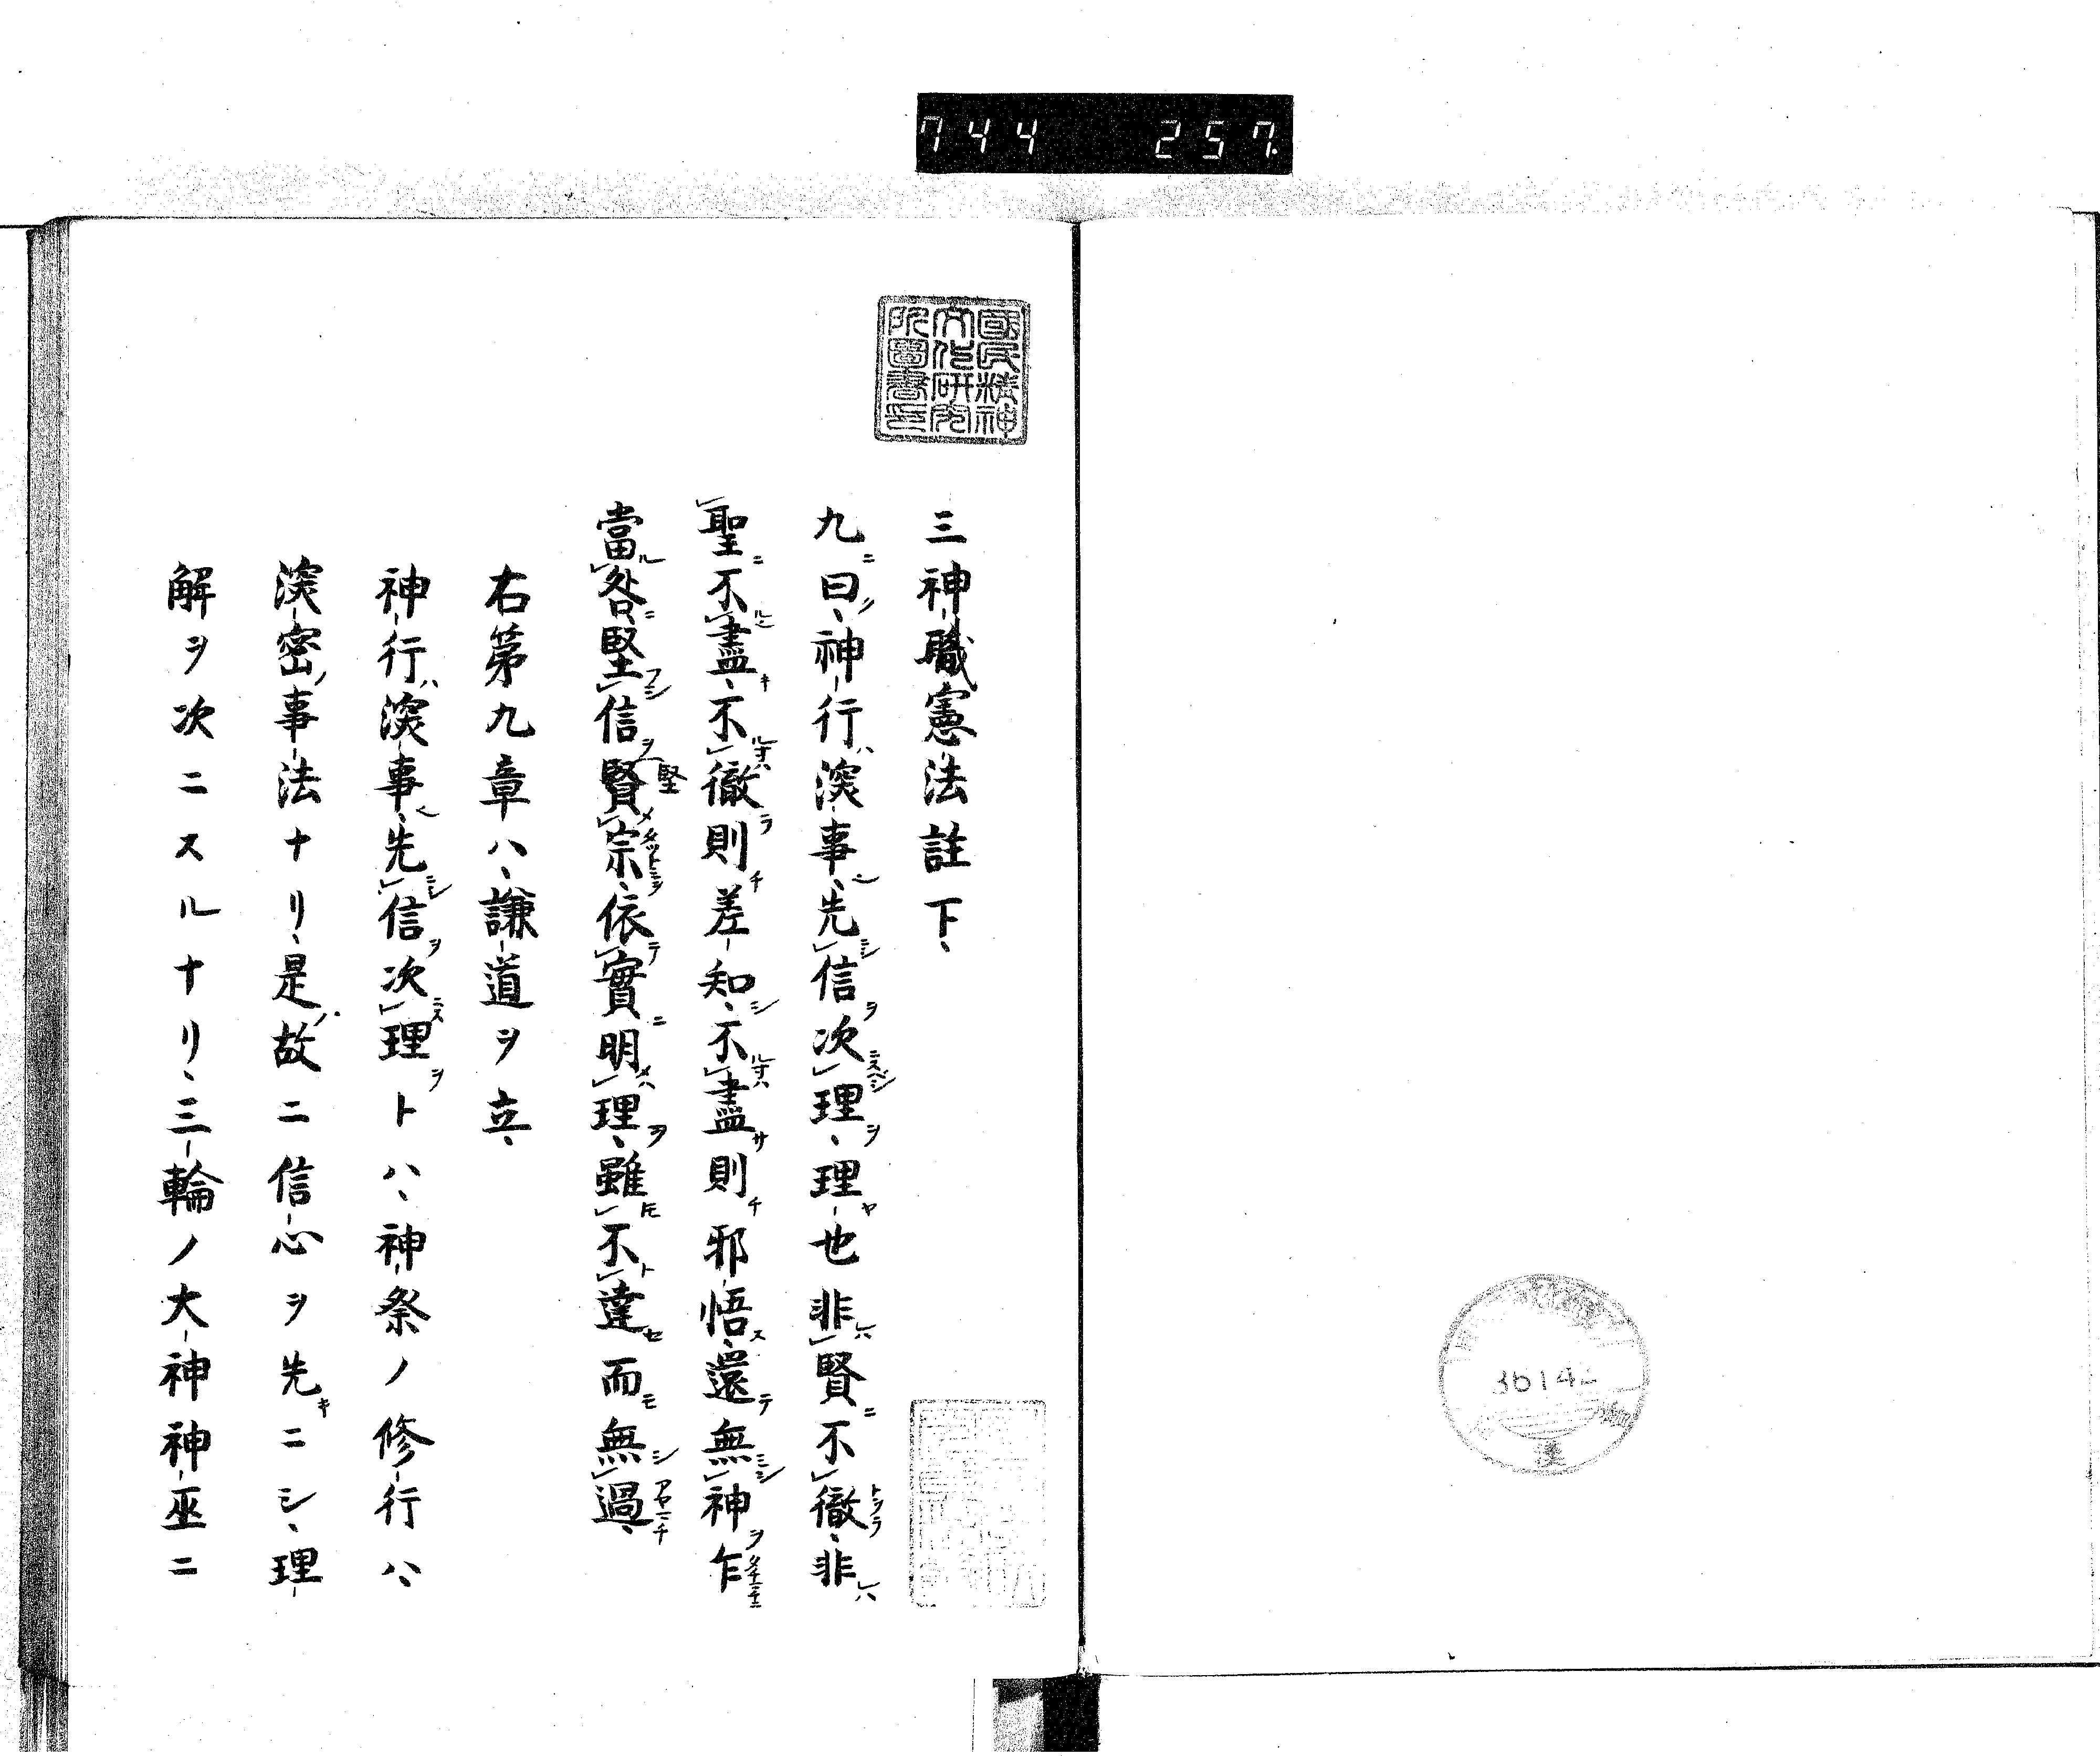 744 257.
國民精神
文化研究
所圖書印
三神職憲法註下、
九曰、神行深事、先信次理、理也非賢不徹、非
聖不盡、不徹則差知、不盡則邪悟、還無神乍
當咎、堅信賢宗、依實明理、雖不達而無過、
堅
右第九章ハ、謙道ヲ立、
神行ハ深事、先信ヲ次理ヲトハ、神祭ノ修行ハ、
深密ノ事法ナリ、是故ニ信心ヲ先キニシ、理
解ヲ次ニスルナリ、三輪ノ大神神巫ニ
36142
漢